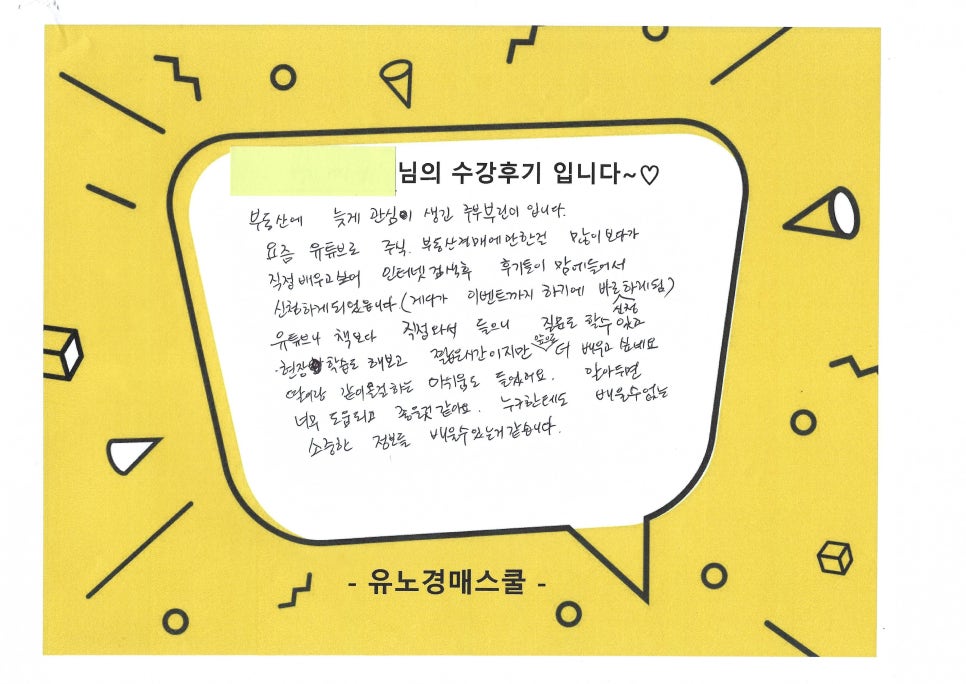 님의 수강후기 입니다~♡
부동산에 늦게 관심이 생긴 주부부린이 입니다.
요즘 유튜브로 주식. 부동산경매에 관한건 많이 보다가
직접 배우고 싶어 인터넷 검색후 후기들이 맘에들어서
신청하게되었습니다 (게다가 이벤트까지 하기에 바로 신청 하게됨)
유튜브나 책보다 직접와서 들으니 질문도 할수 있고
현장 학습도 해보고 짧은시간이지만 앞으로 더 배우고 싶네요
딸이랑 같이올걸하는 아쉬움도 들었어요. 알아두면
너무 도움되고 좋을것 같아요. 누구한테도 배울수없는
소중한 정보들 배울수있는거 같습니다.
- 유노경매스쿨 -